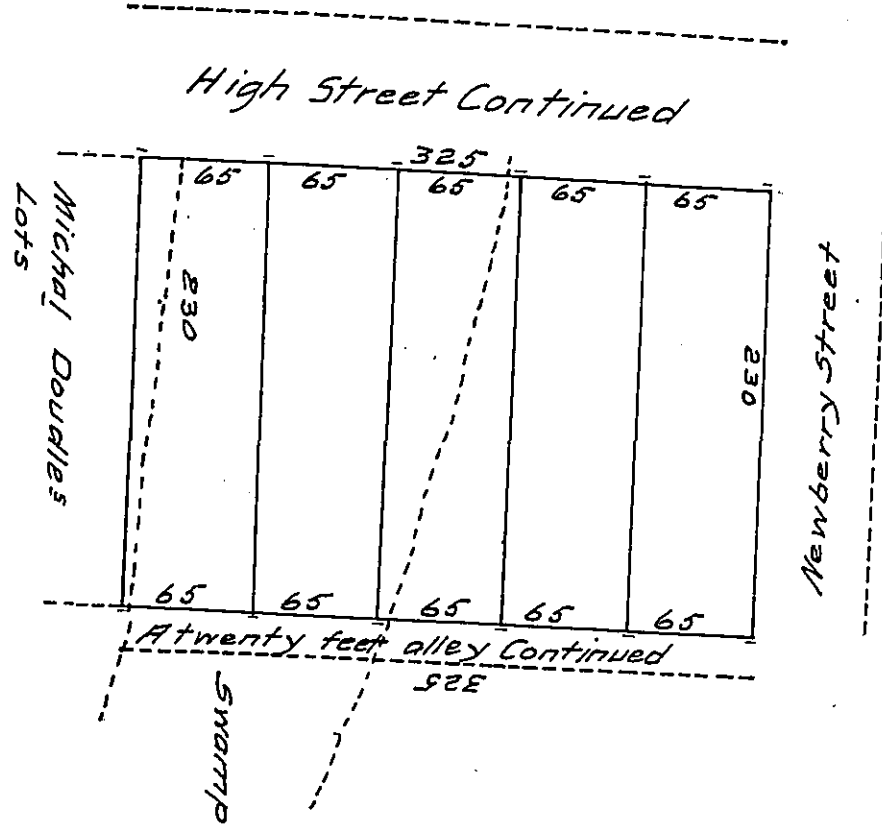 High Street Continued
325
65 65 65 65 65
Michal Doudles
Lots
230
230
Newberry Street
65 65 65 65 65
A twenty feet alley Continued
325
Swamp